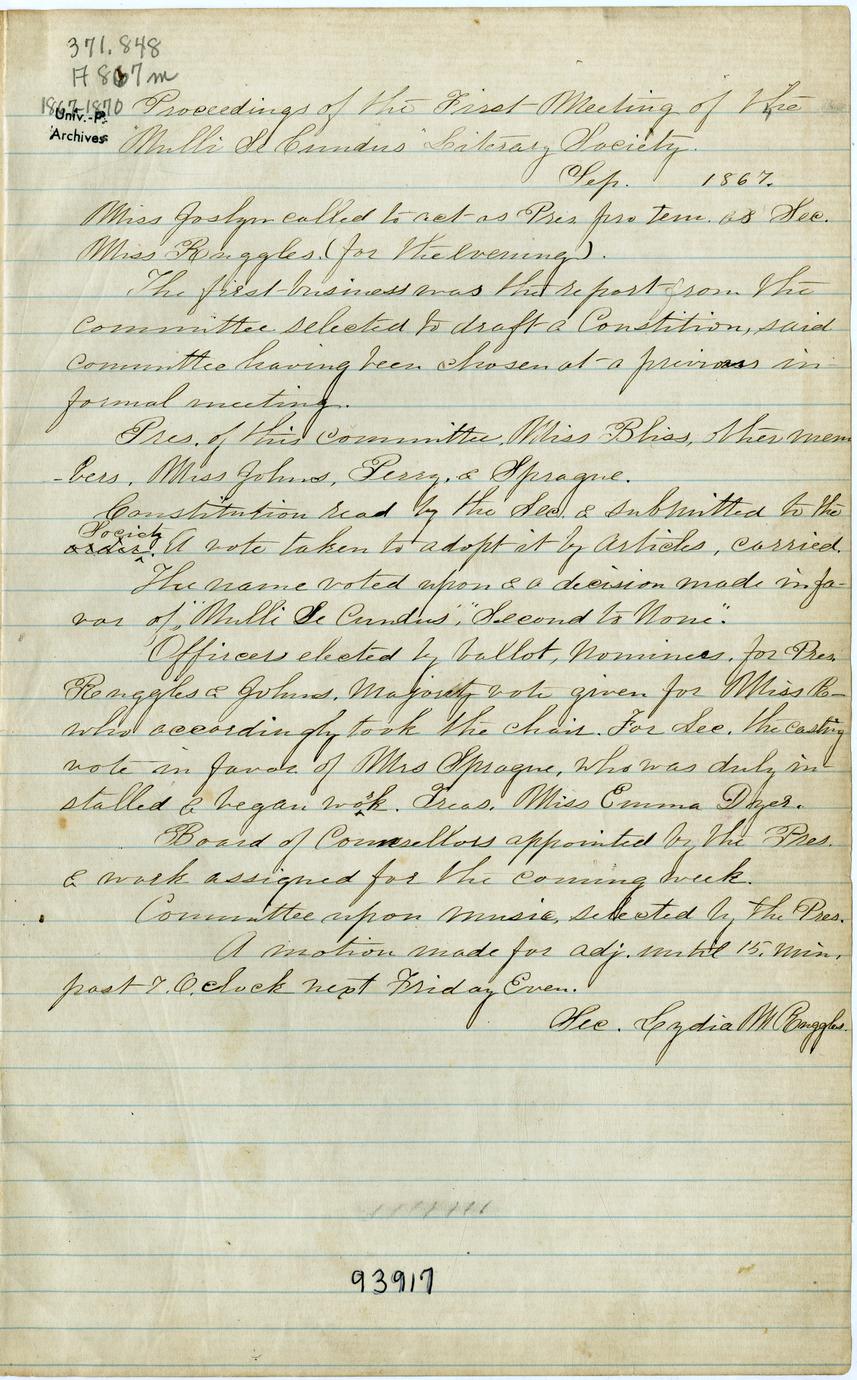 371.848
A867m
1867-1870
Univ.-P.
Archives
Proceedings of the First Meeting of the
"Nulli Se Cundus" Literary Society.
Sep. 1867.
Miss Joslyn called to act as Pres pro tem. as Sec.
Miss Ruggles. (for the evening).
The first business was the report from the
committee selected to draft a Constition, said
committee having been chosen at a previous in-
formal meeting.
Pres. of this committee, Miss Bliss, other mem
-bers, Miss Johns, Perry, & Sprague.
Constitution read by the Sec. & submitted to the
Society
order. A vote taken to adopt it by Articles, carried.
The name voted upon & a decision made in fa-
vor of, "Nulli Se Cundus", "Second to None".
Officers elected by ballot, Nominees, for Pres.
Ruggles & Johns. Majority vote given for Miss R—
who accordingly took the chair. For Sec. the casting
vote in favor of Mrs Sprague, who was duly in-
stalled & began work. Treas. Miss Emma Dyer.
Board of Counsellors appointed by the Pres.
& work assigned for the coming week.
Committee upon music, selected by the Pres.
A motion made for adj. until 15. min,
past 7. O,clock next Friday Even.
Sec. Lydia M Ruggles.
93917